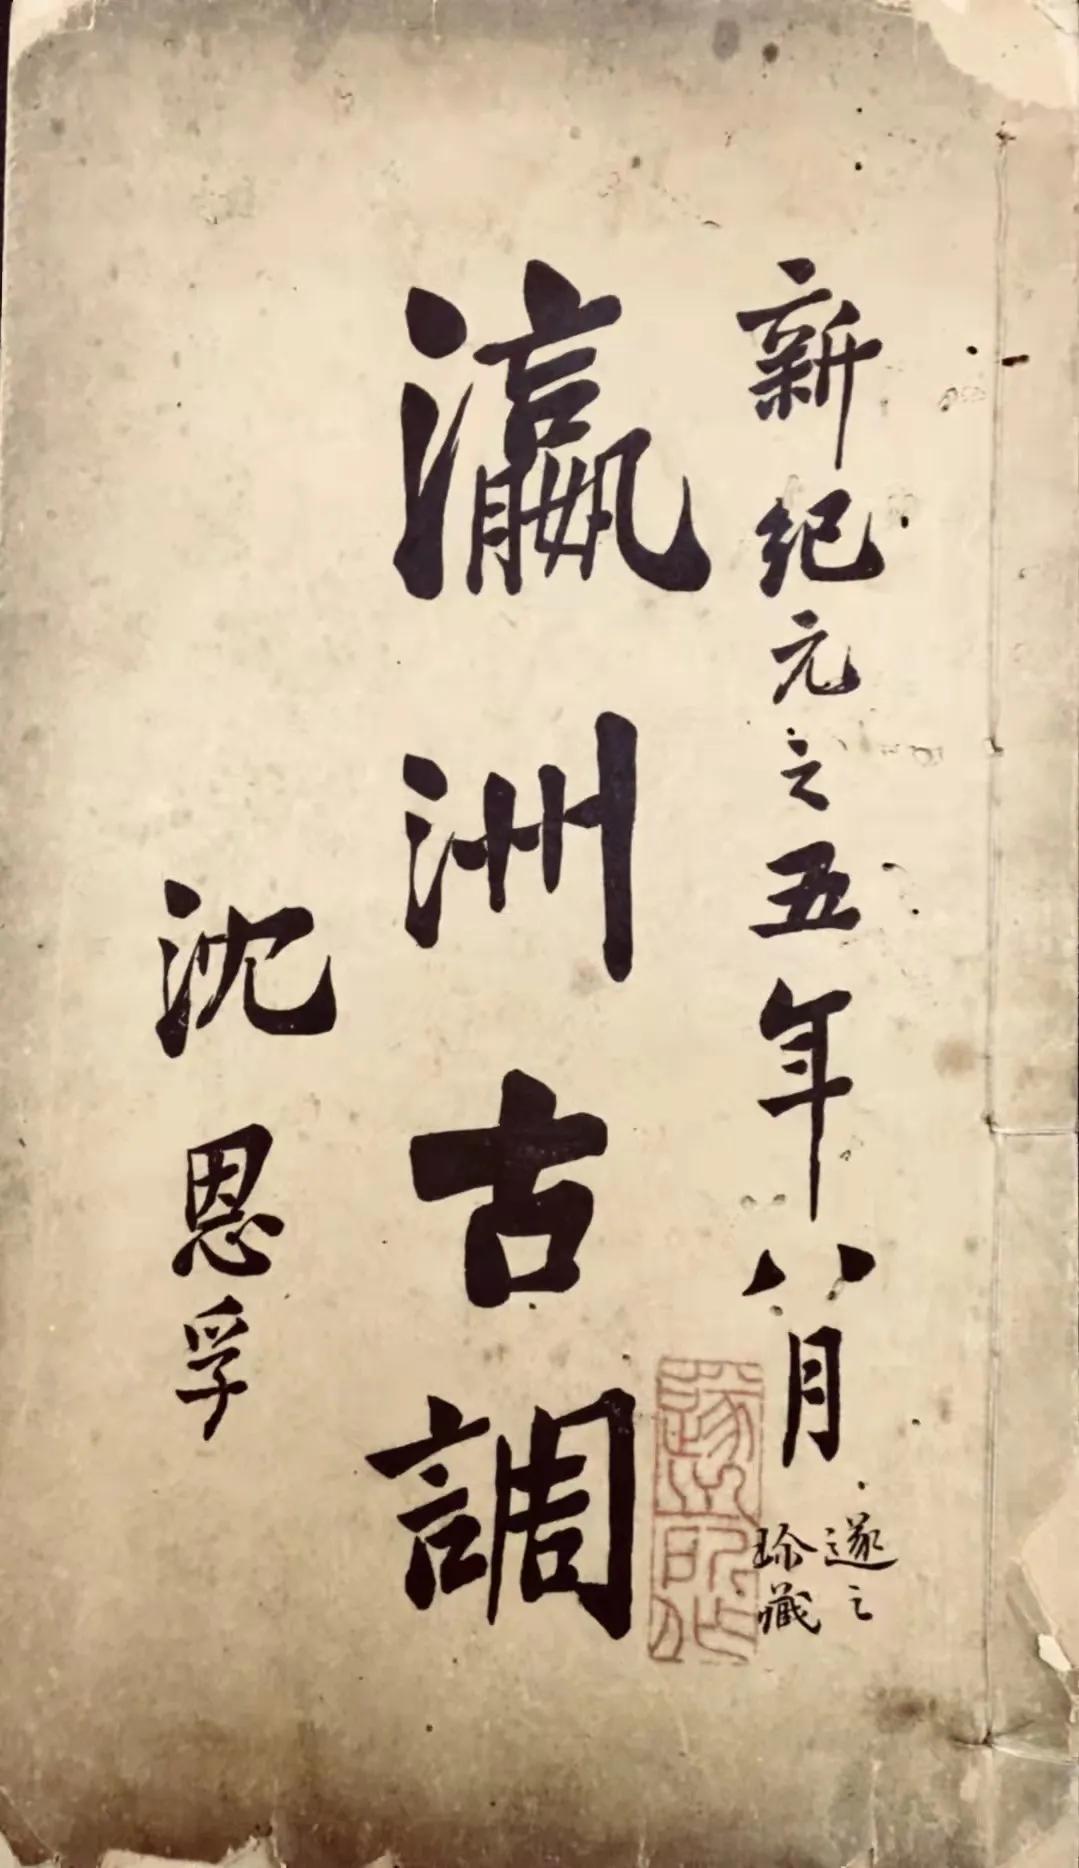 新紀元之五年八月
瀛洲古調
沈恩孚
遂之
珍藏